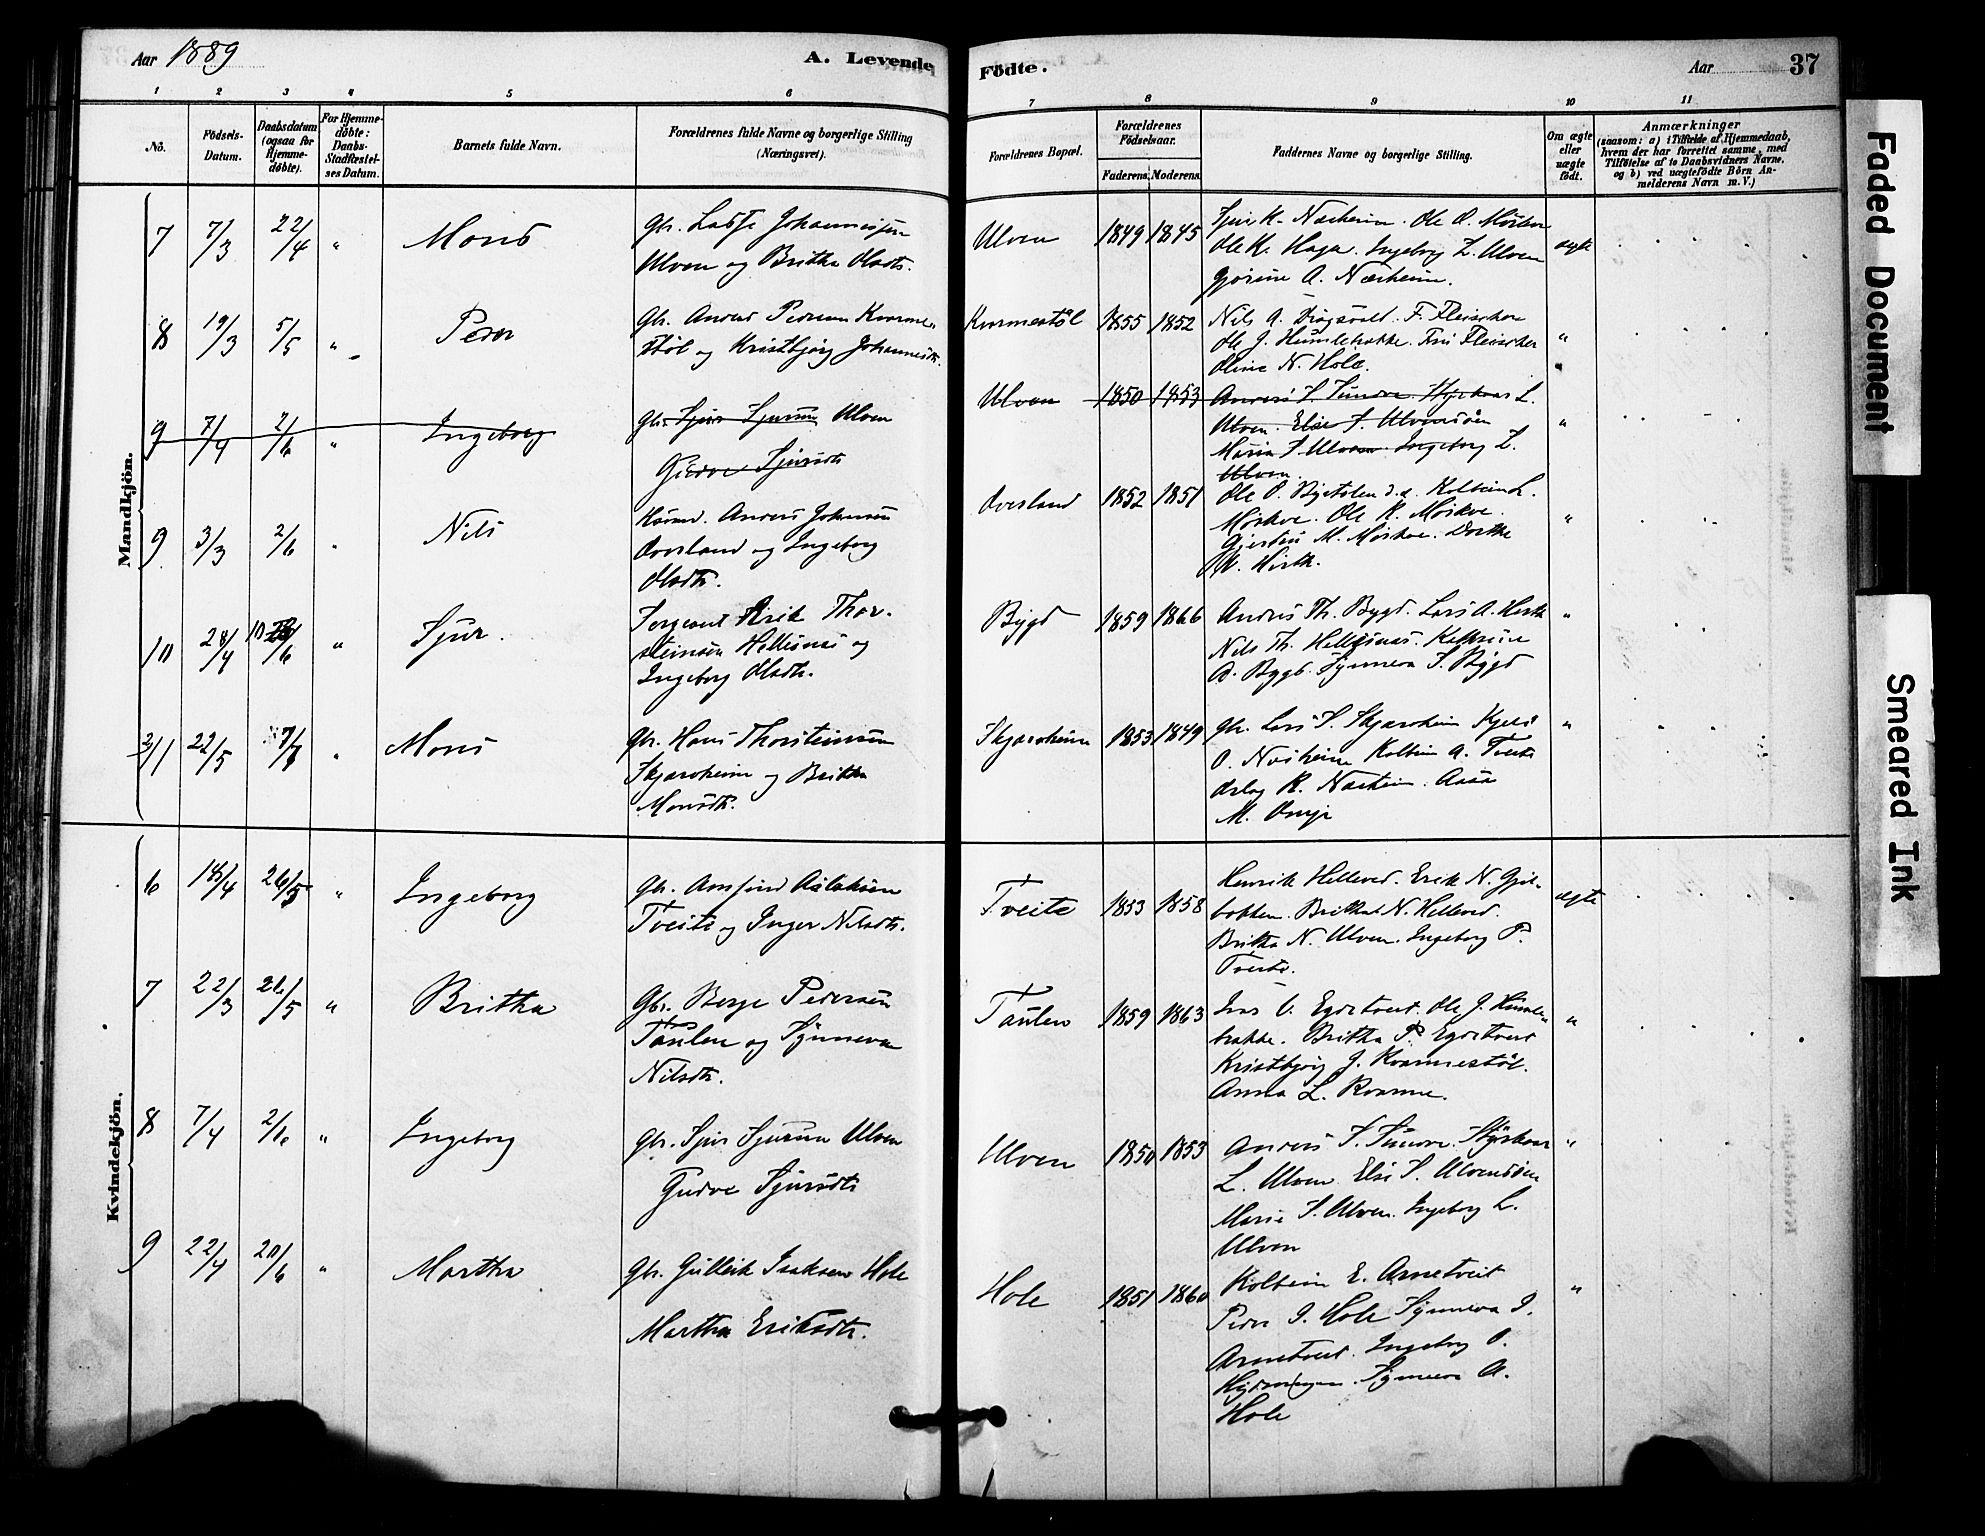 Aar 1889
A. Levende
Födte.
Aar
37
1 2 3 4 5 6 7 8 9 10 11
No.
Födsels-
Datum.
Daabsdatum
(ogsaa for
Hjemme-
döbte).
For Hjemme-
döbte:
Daabs-
Stadfæstel-
ses Datum.
Barnets fulde Navn.
Forældrenes fulde Navne og borgerlige Stilling
(Næringsvei).
Forældrenes Bopæl.
Forældrenes
Födselsaar.
Faderens. Moderens.
Faddernes Navne og borgerlige Stilling.
Om ægte
eller
uægte
födt.
Anmærkninger
(saasom: a) i Tilfælde af Hjemmedaab,
hvem der har forrettet samme, med
Tilföielse af to Daabsvidners Navne,
og b) ved uægtefödte Börn An-
melderens Navn m. V.)
Mandkjön.
7 7/3 22/4 " Mons
Gbr. Ladse Johannessen
Ulven og Britha Olsdtr.
Ulven 1849 1845
Sjur K. Nesheim. Ole O.
Ole K. Haga. Ingeborg L. Ulven
A. Nesheim.
ægte
8 19/3 5/5 " Peder
Gbr. Anders Pedersen Kvarme-
stöl og Kristbjörg Johannesdtr.
Kvarmestöl 1855 1852
Nils A. F. Fleischer
Ole J. Humlebrekke. Fru Fleischer
Oline N. Hole.
"
9 7/4 2/6 " Ingeborg
Gbr. Sjur Sjursen Ulven
Gudve Sjursdtr
Ulven 1850 1853
Anders S. Sundve. Styrkaar L.
Ulven. Else S. Ulvensöen
Maria S. Ulven. Ingeborg L.
Ulven.
"
9 3/3 2/6 " Nils
Anders Johansen
Dorsland og Ingeborg
Olsdtr.
1852 1851
Ole O. Kolbein L.
Mörkve. Ole K. Mörkve.
M. Mörkve. Dorthe
"
10 28/4 10/6 " Sjur.
Sergeant Erik Thor-
steinsen Hellesnes og
Ingeborg Olsdtr.
Bygd 1859 1866
Anders Th. Bygd. Lars A.
Nils Th. Hellesnes. Kathrine
A. Bygd. Synneva S. Bygd
"
11 22/5 " Mons
Gbr. Hans Thorsteinsen
Skjærsheim og Britha
Monsdtr.
Skjærsheim 1853 1849
Gbr. Lars S. Skjærsheim
O. Nesheim Kolbein A. Tveite
K. Nesheim. Aasa
M.
"
Kvindekjön.
6 18/4 26/5 " Ingeborg
Gbr. Arnfind Aslaksen
Tveite og Inger Nilsdtr.
Tveite 1853 1858
Henrik Helleved. Erik N.
Britha N. Helleved.
Britha N. Ulven. Ingeborg P.
Tveite.
ægte
7 22/3 26/5 " Britha
Gbr. Börge Pedersen
Taulen og Synneva
Nilsdtr.
Taulen 1859 1863
Egdetveit. Ole J. Humle-
brekke. Britha P. Egdetveit
Kristbjörg J. Kvarmestöl.
Anna L. Kvarme.
"
8 7/4 2/6 " Ingeborg
Gbr. Sjur Sjursen Ulven
Gudve Sjursdtr
Ulven 1850 1853
Anders S. Sundve. Styrkaar
L. Ulven. Else S. Ulvensöen
Marie S. Ulven. Ingeborg L.
Ulven
"
9 22/4 20/6 " Martha
Gbr. Gulleik Isaksen Hole
Martha Eriksdtr.
Hole 1851 1860
Kolbein E. Armetveit
Peder I. Hole Synneva I.
Armetveit. Ingeborg O.
Synneva A.
Hole
"
Faded Document
Smeared Ink